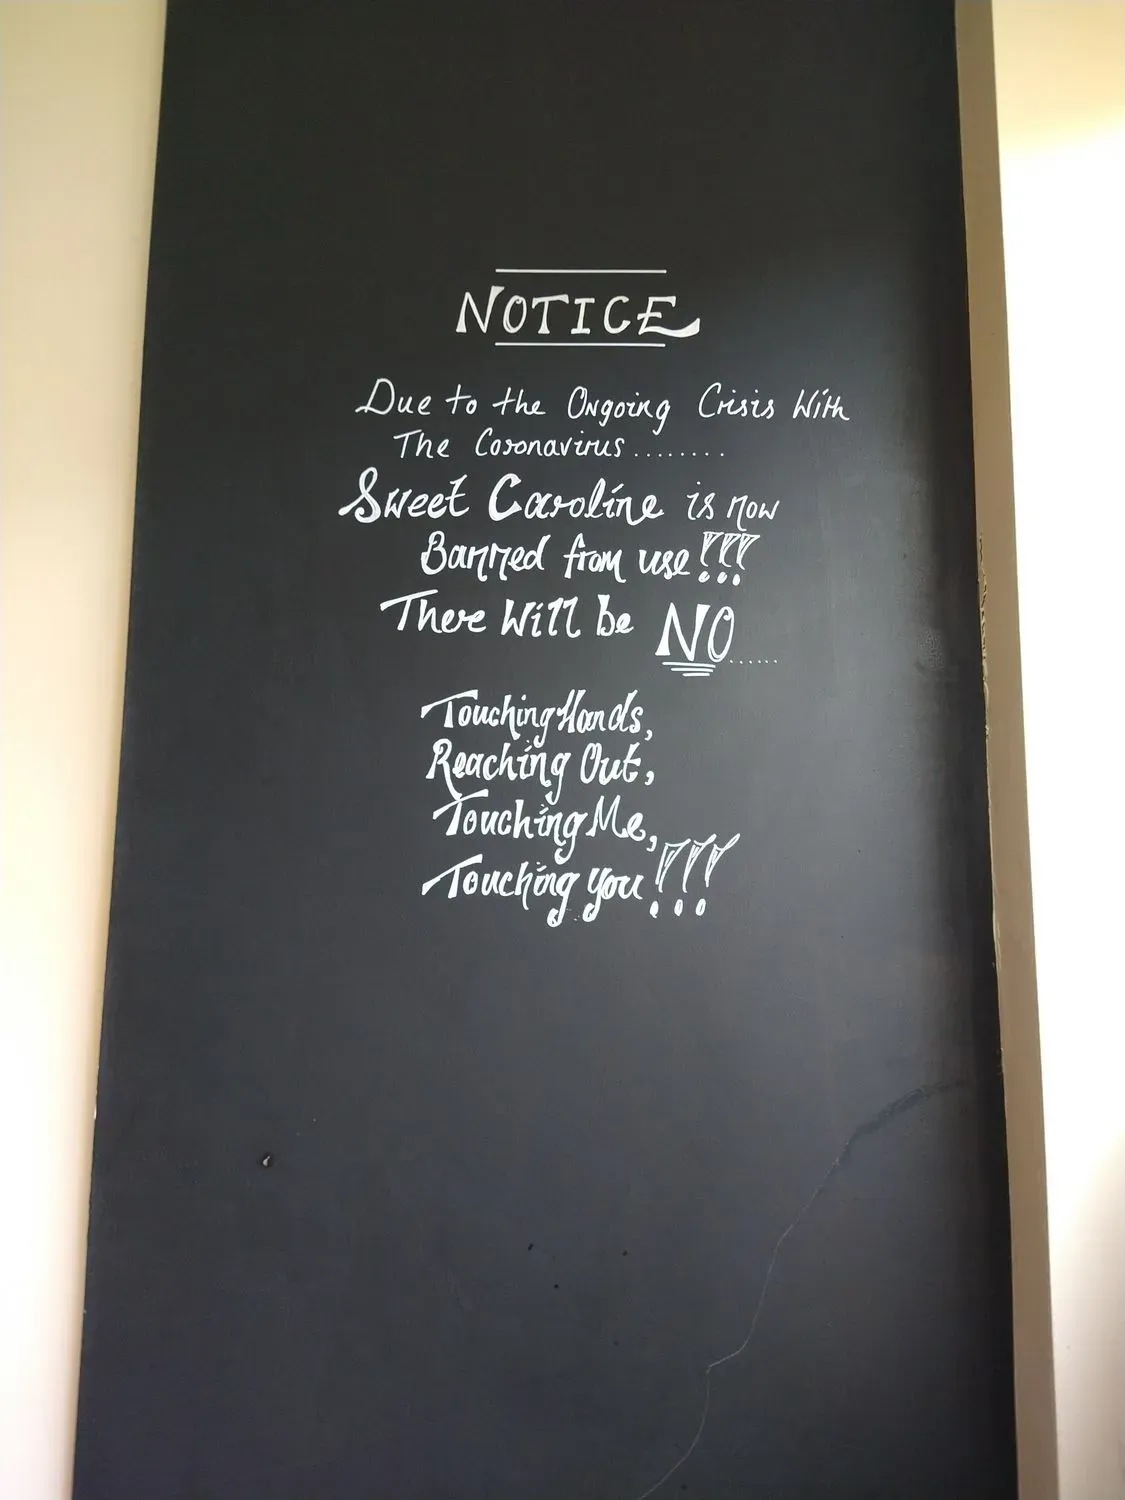 NOTICE
Due to the Ongoing Crisis With
The Coronavirus........
Sweet Caroline is now
Banned from use!!!
There Will be NO......
Touching Hands,
Reaching Out,
Touching Me,
Touching you!!!